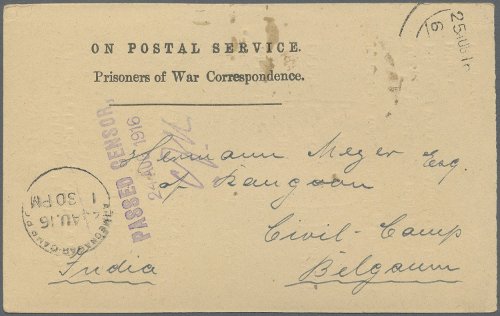 ON POSTAL SERVICE.
Prisoners of War Correspondence.
PASSED CENSOR.
24 AUG 1916
Hermann Meyer Esq.
of Rangoon
Civil-Camp
Belgaum
India
AU.16
1.30 PM
25 AUG 16